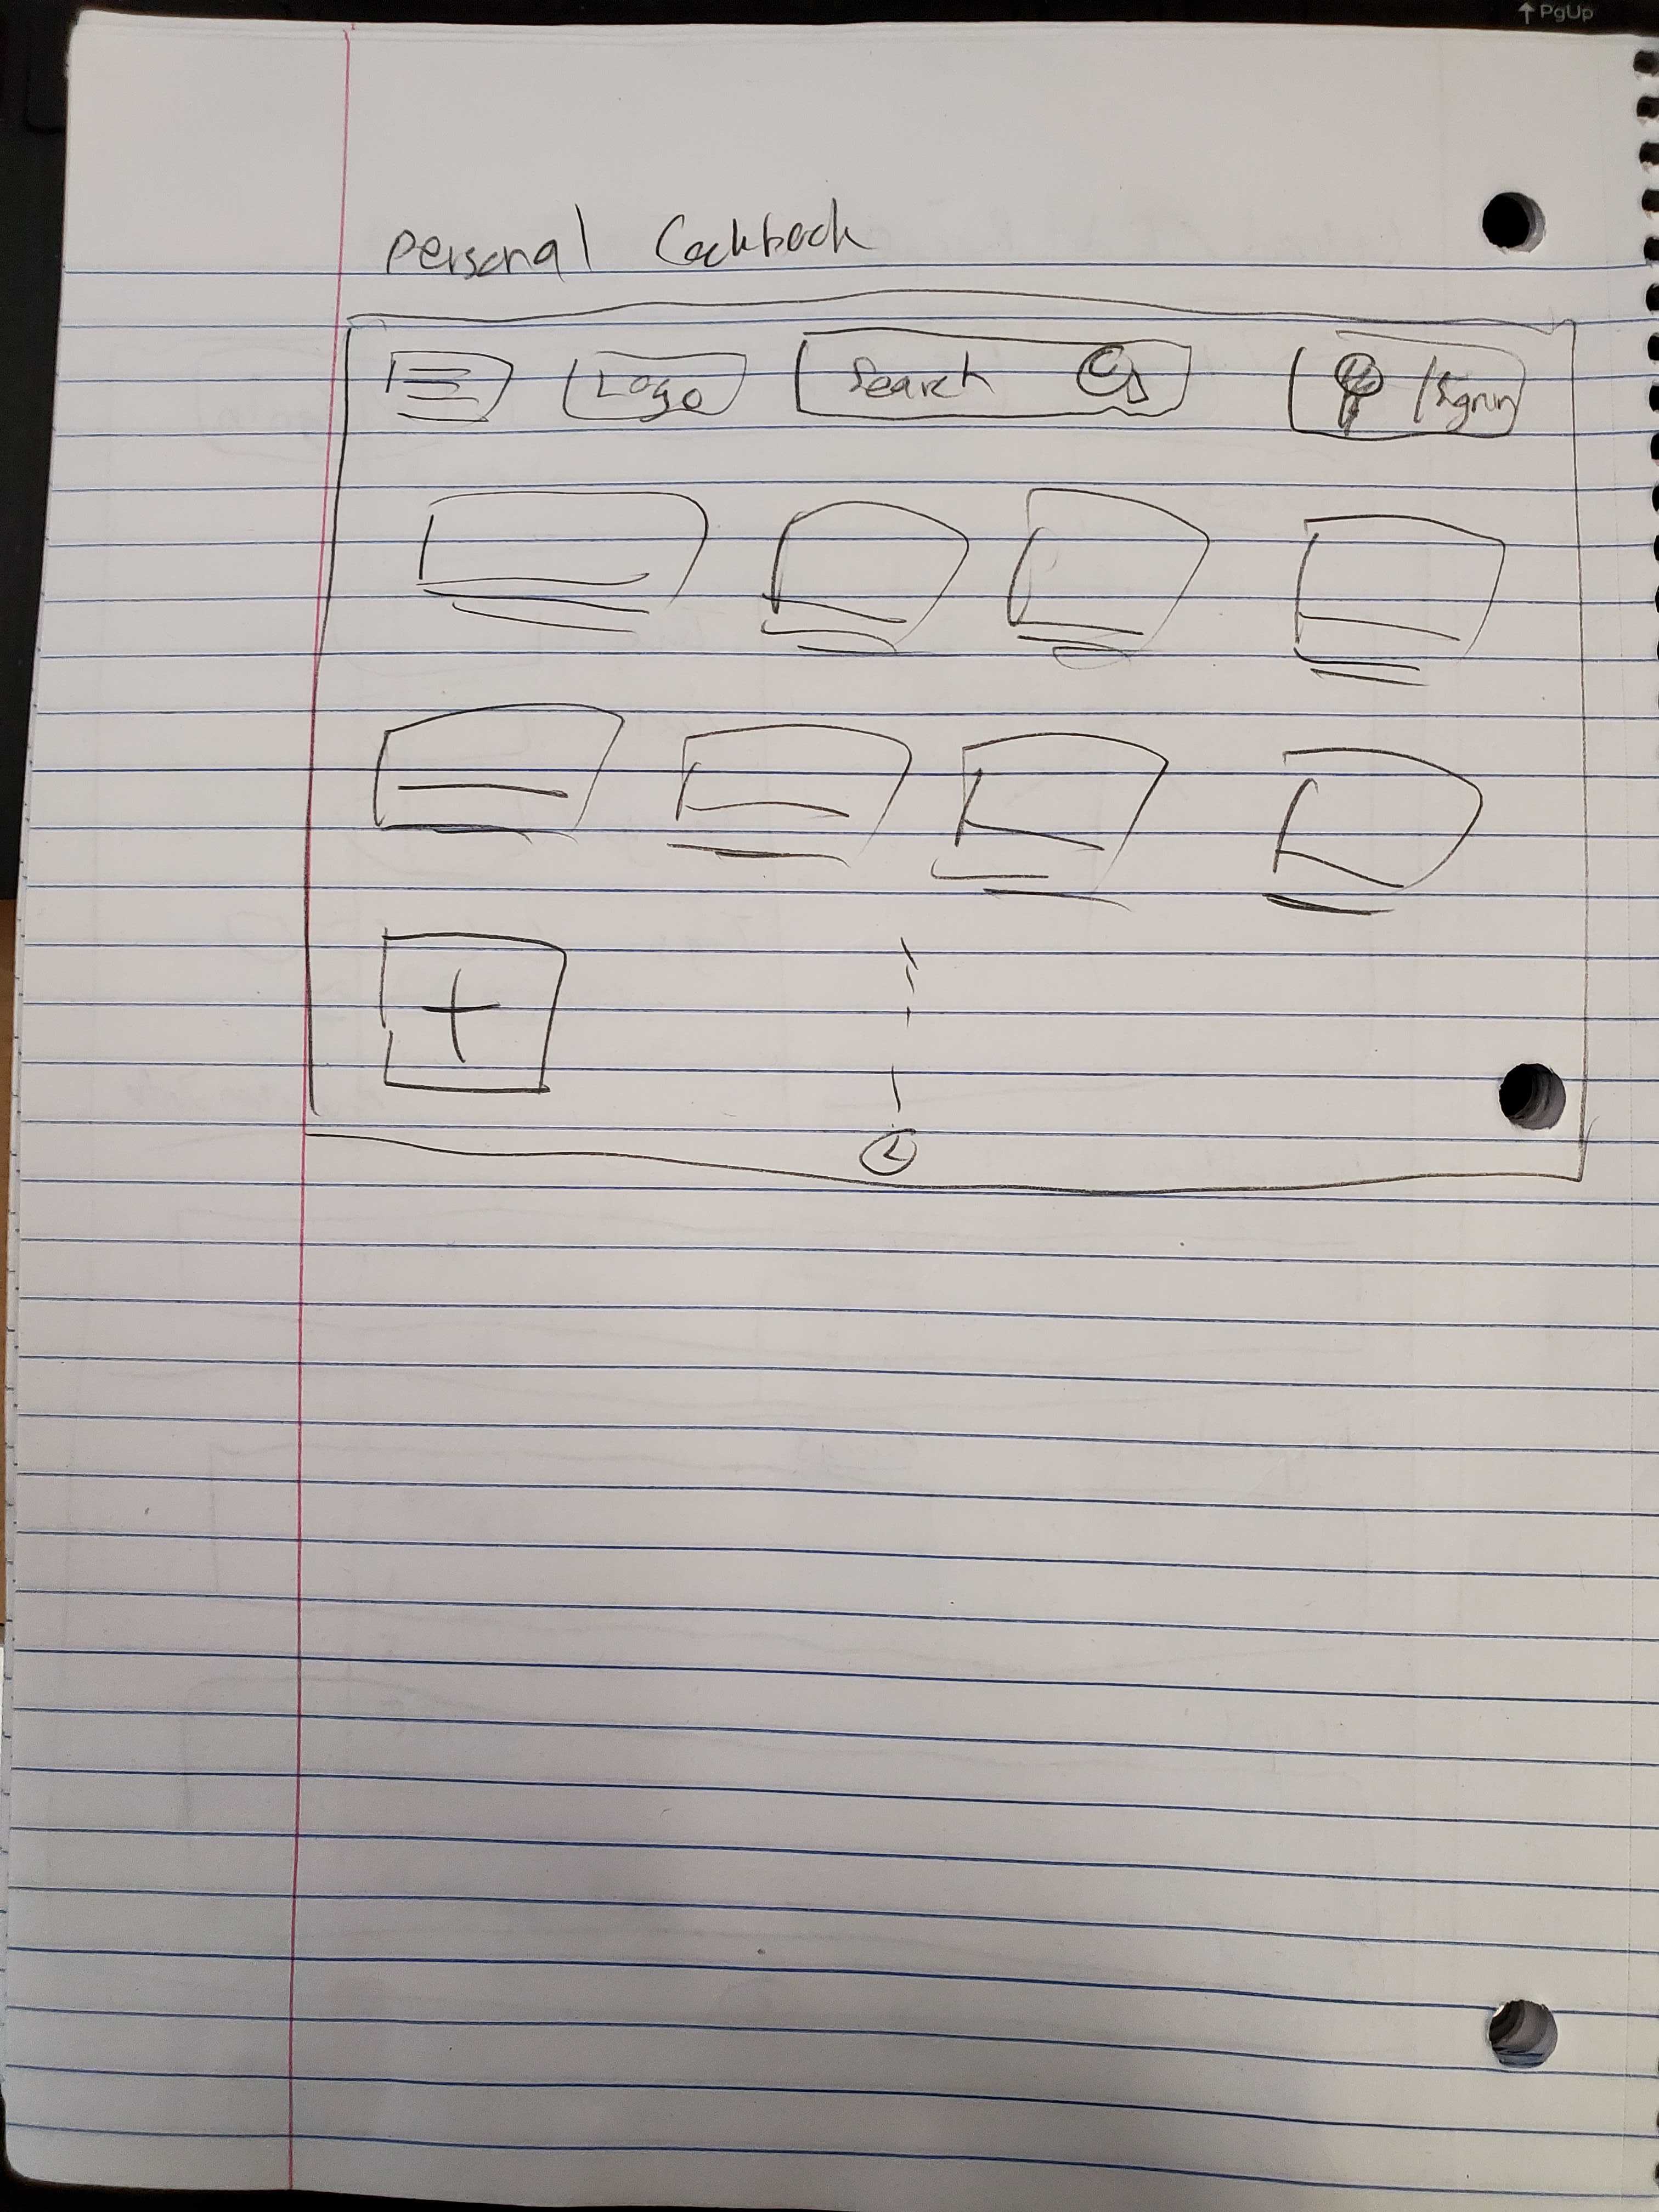 ↑ PgUp
Personal Cookbook
Logo
Search
/Signin